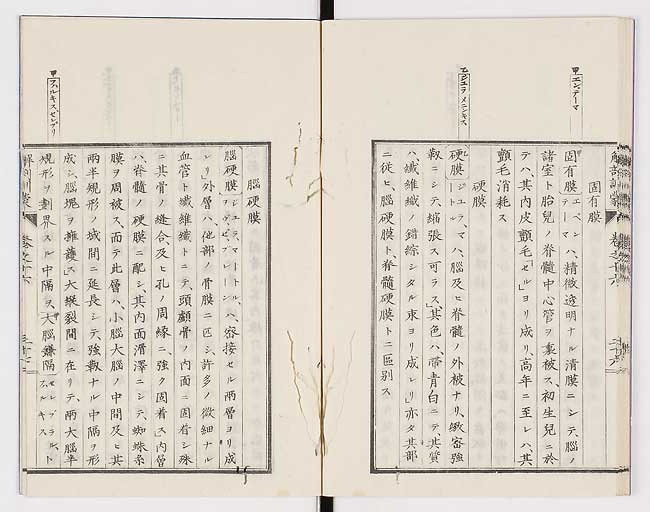 甲 エンデーマ
固有膜
固有膜 エペンデーマハ、精微透明ナル清膜ニシテ、脳ノ
諸室ト胎兒ノ脊髓中心管ヲ裏被ス、初生兒ニ於
テハ、其内皮顫毛セルヨリ成リ高年ニ至レハ其
顫毛消耗ス
硬膜
硬膜 ジユラ、マハ、脳及ヒ脊髓ノ外被ナリ、緻密強
靱ニシテ縮張ス可ラス」其色ハ帯青白ニテ其質
ハ纎維纎ノ錯綜シタル束ヨリ成レリ」亦タ其部
ニ從ヒ脳硬膜ト、脊髓硬膜トニ區别ス
乙 ジユラ メニンキス
脳硬膜
脳硬膜 ハ、密接セル兩層ヨリ成
レリ」外層ハ、他部ノ骨膜ニ匹シ、許多ノ微細ナル
血管ト纎維纎トニテ、頭顱骨ノ内面ニ固着シ殊
ニ其骨ノ縫合及ヒ孔ノ周縁ニ強ク固着ス」内層
ハ、脊髓ノ硬膜ニ配シ、其内面滑澤ニシテ、蜘蛛糸
膜ヲ周被ス、而テ此層ハ、小脳大脳ノ中間及ヒ其
兩半規形ノ城間ニ延長シテ、強靱ナル中隔ヲ形
成シ、脳塊ヲ擁護ス」大縱裂間ニ在リテ、兩大脳半
規形ヲ劃界スル中隔ヲ、大脳鎌隔
甲 フルキス、センブリ